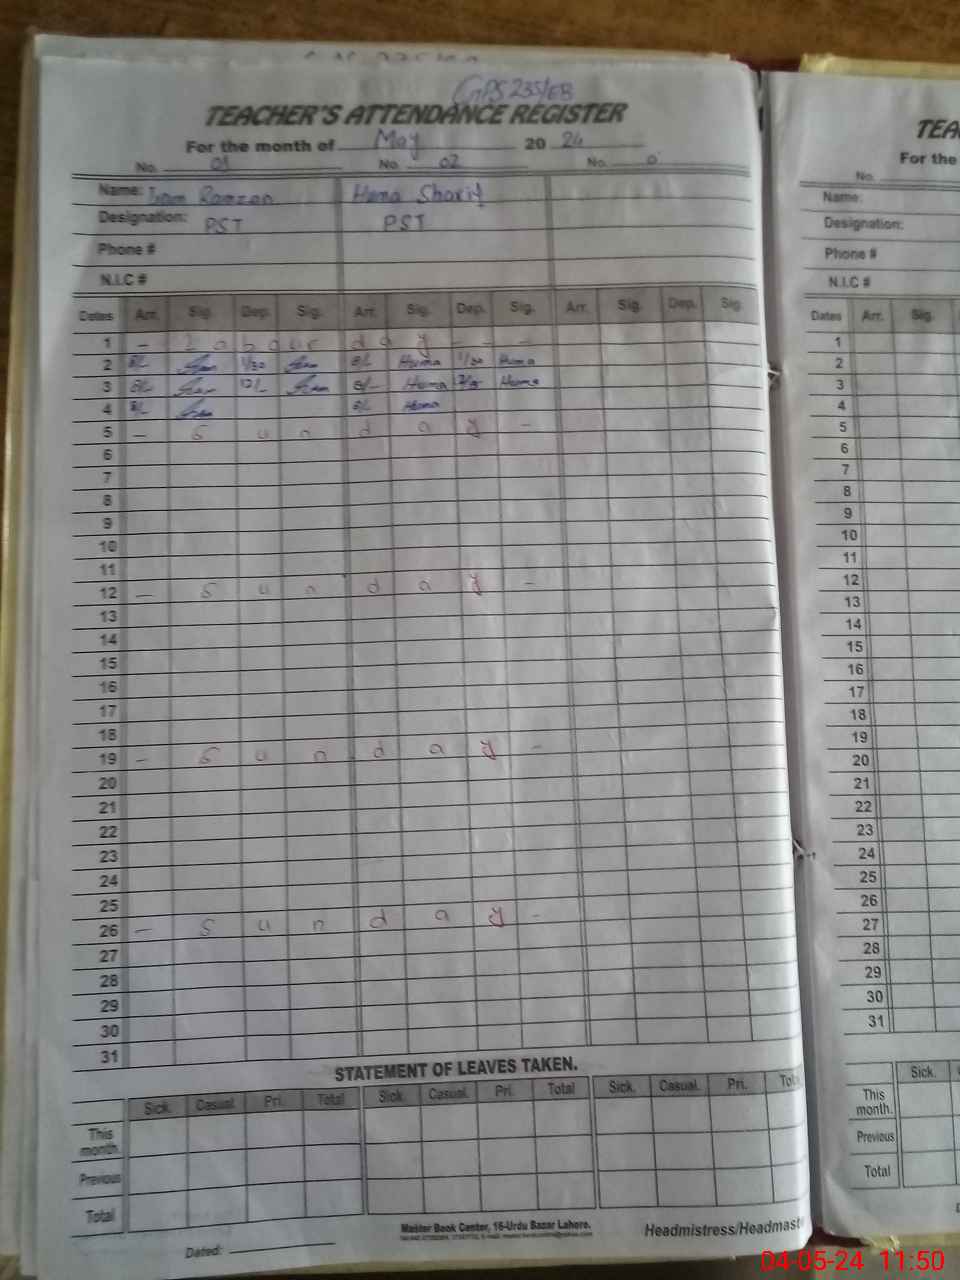 GPS 235/EB
TEACHER'S ATTENDANCE REGISTER
For the month of May 20 24
No. 01 No. 02 No. 0
Name: Iram Ramzan Huma Sharif
Designation: PST PST
Phone #
N.I.C #
Dates Arr. Sig. Dep. Sig. Arr. Sig. Dep. Sig. Arr. Sig. Dep. Sig.
1 - Labour day - - -
2 8/- 1/30 8/- Huma 1/30 Huma
3 8/- 12/- 8/- Huma Huma
4 8/- 8/- Huma
5 - Sunday -
6
7
8
9
10
11
12 - Sunday -
13
14
15
16
17
18
19 - Sunday -
20
21
22
23
24
25
26 - Sunday -
27
28
29
30
31
STATEMENT OF LEAVES TAKEN.
Sick. Casual. Pri. Total Sick. Casual. Pri. Total Sick. Casual. Pri. Total
This month.
Previous
Total
Master Book Center, 16-Urdu Bazar Lahore.
Dated: Headmistress/Headmast
TEA
For the
No.
Name:
Designation:
Phone #
N.I.C #
Dates Arr. Sig.
1
2
3
4
5
6
7
8
9
10
11
12
13
14
15
16
17
18
19
20
21
22
23
24
25
26
27
28
29
30
31
Sick.
This month.
Previous
Total
04-05-24 11:50